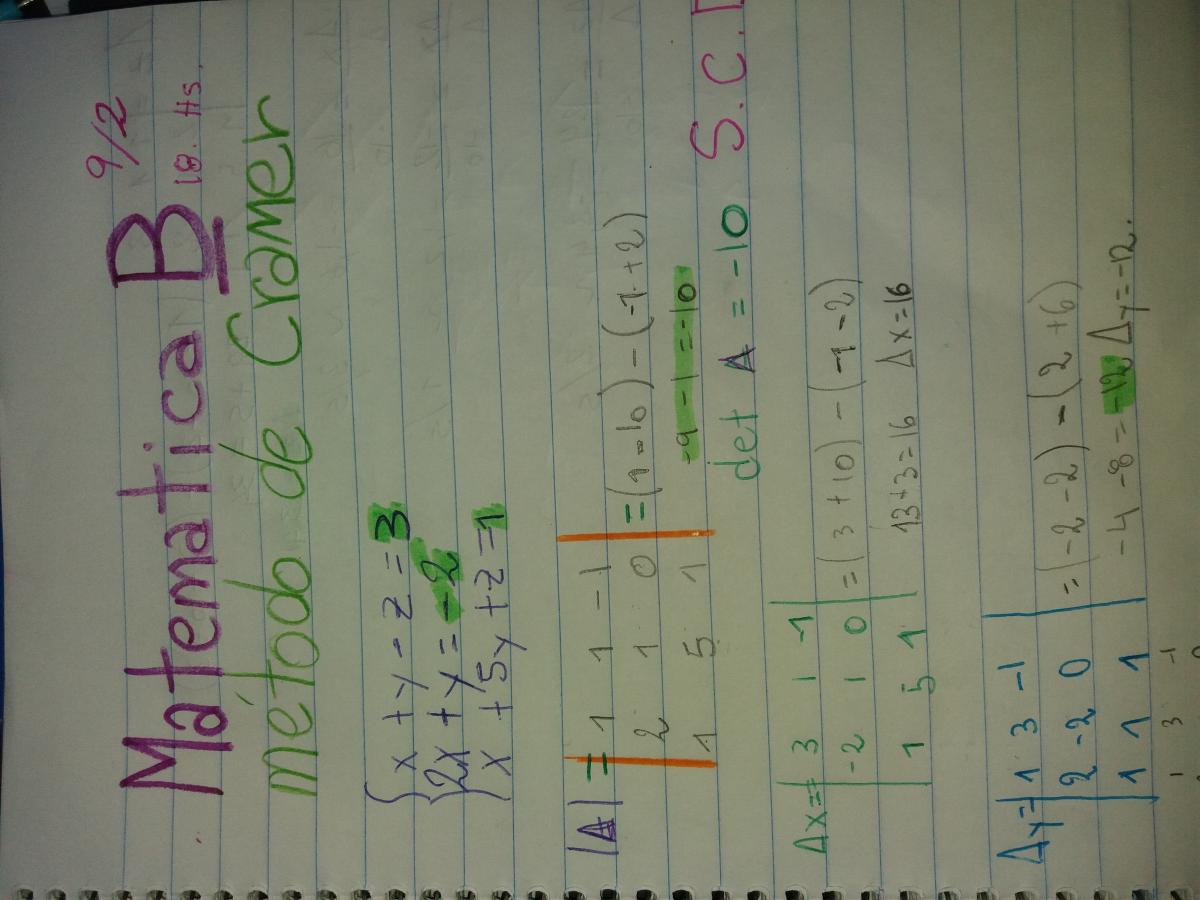 9/2
Matematica B 18:Hs.
método de Cramer
x + y - z = 3
2x + y = -2
x + 5y + z = 1
|A| = 1 1 -1
2 1 0 = (1-10) - (-1+2)
1 5 1 -9 -1 = -10
det A = -10 S.C.
Δx= 3 1 -1
-2 1 0 = (3+10) - (-1-2)
1 5 1 13+3=16 Δx=16
Δy= 1 3 -1
2 -2 0 = (-2-2) - (2+6)
1 1 1 -4 -8 = -12 Δy=-12.
1 3 -1